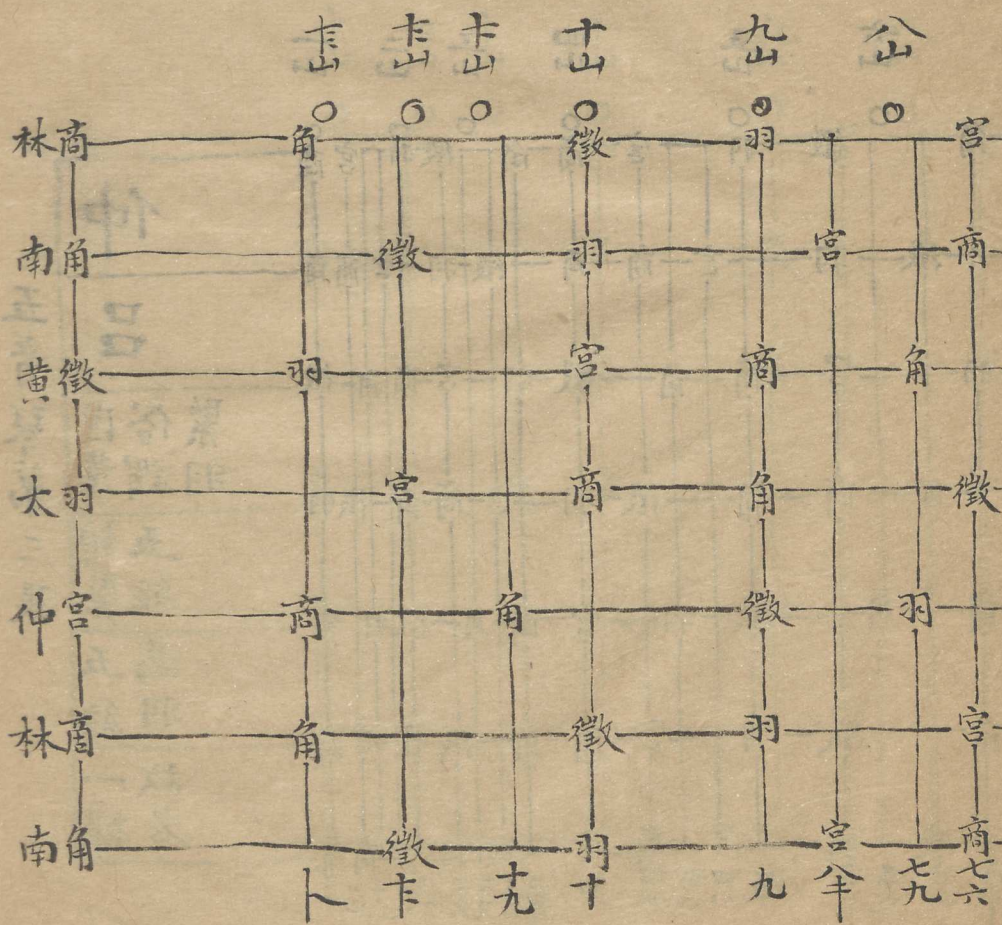 十三山 十二山 十一山 十山 九山 八山
林 商 角 徵 羽 宮
南 角 徵 羽 宮 商
黃 徵 羽 宮 商 角
太 羽 宮 商 角 徵
仲 宮 商 角 徵 羽
林 商 角 徵 羽 宮
南 角 徵 羽 宮 商
卜 十二 十九 十 九 八半 七九 七六